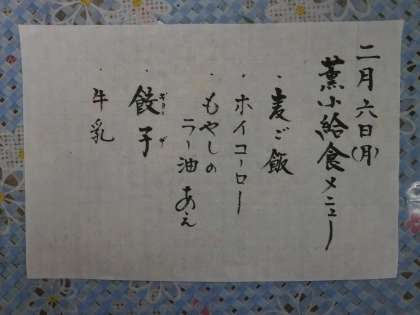 二月六日(月)
薫小給食メニュー
・麦ご飯
・ホイコーロー
・もやしの
ラー油あえ
・餃子
ギョーザ
・牛乳